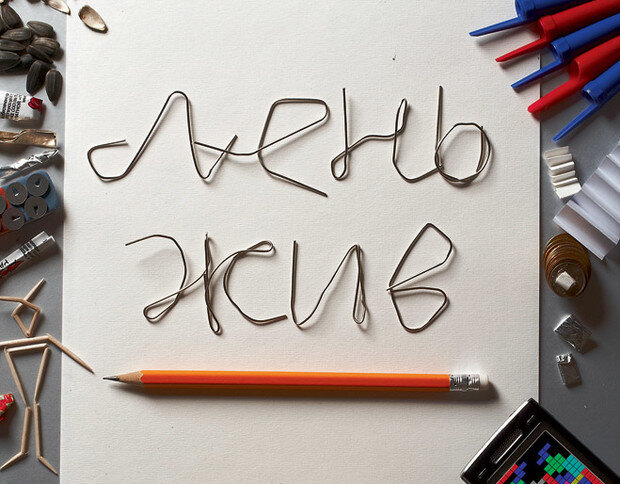 лень
жив